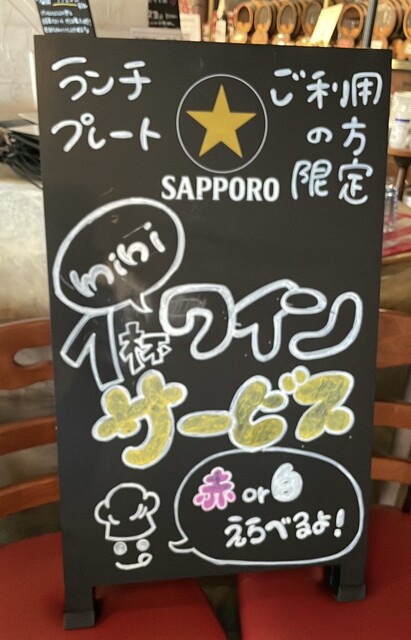 ランチ
プレート
ご利用
の方
限定
SAPPORO
mini
1杯ワイン
サービス
赤or白
えらべるよ!